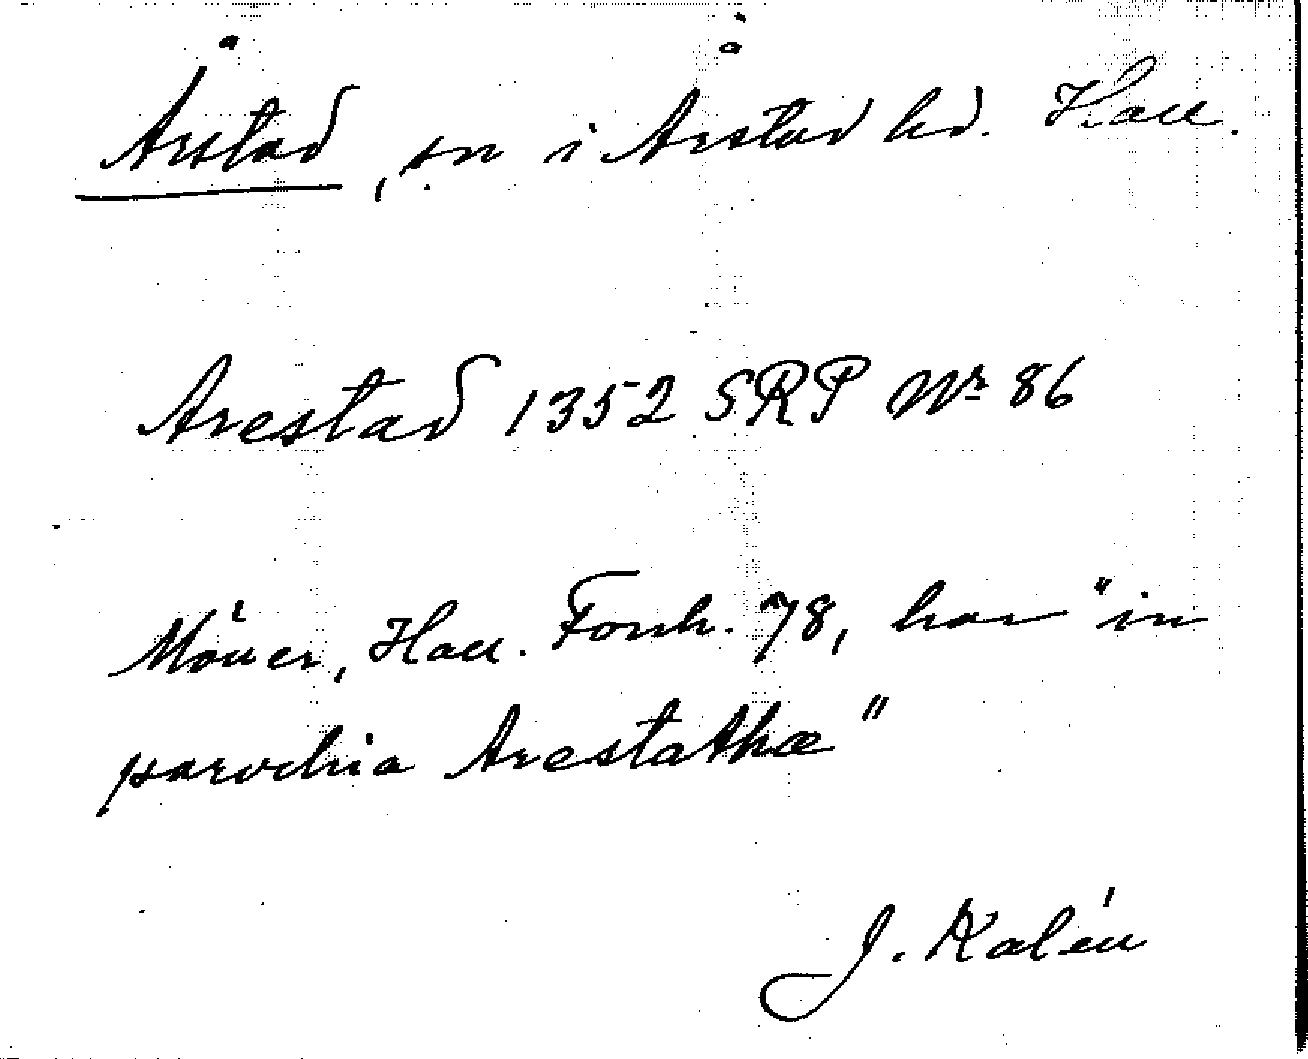 Årstad, sn i Årstad hd. Hall.
Arestad 1352 SRP Nr 86
Möller, Hall. Fornh. 78, har "in
parochia Arestathæ"
J. Kalén